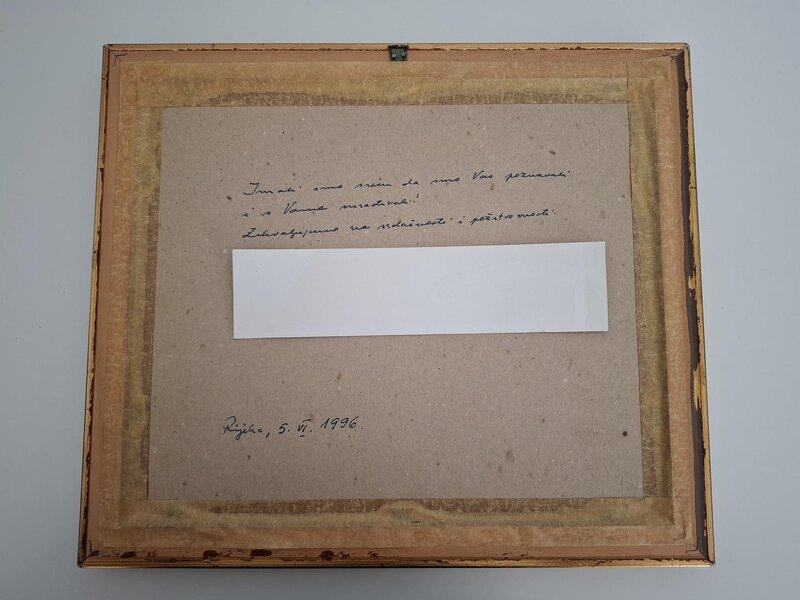 Imali smo sreću da smo Vas poznavali
i s Vama surađivali!
Zahvaljujemo na srdačnosti i požrtvovnosti.
Rijeka, 5. VI. 1996.